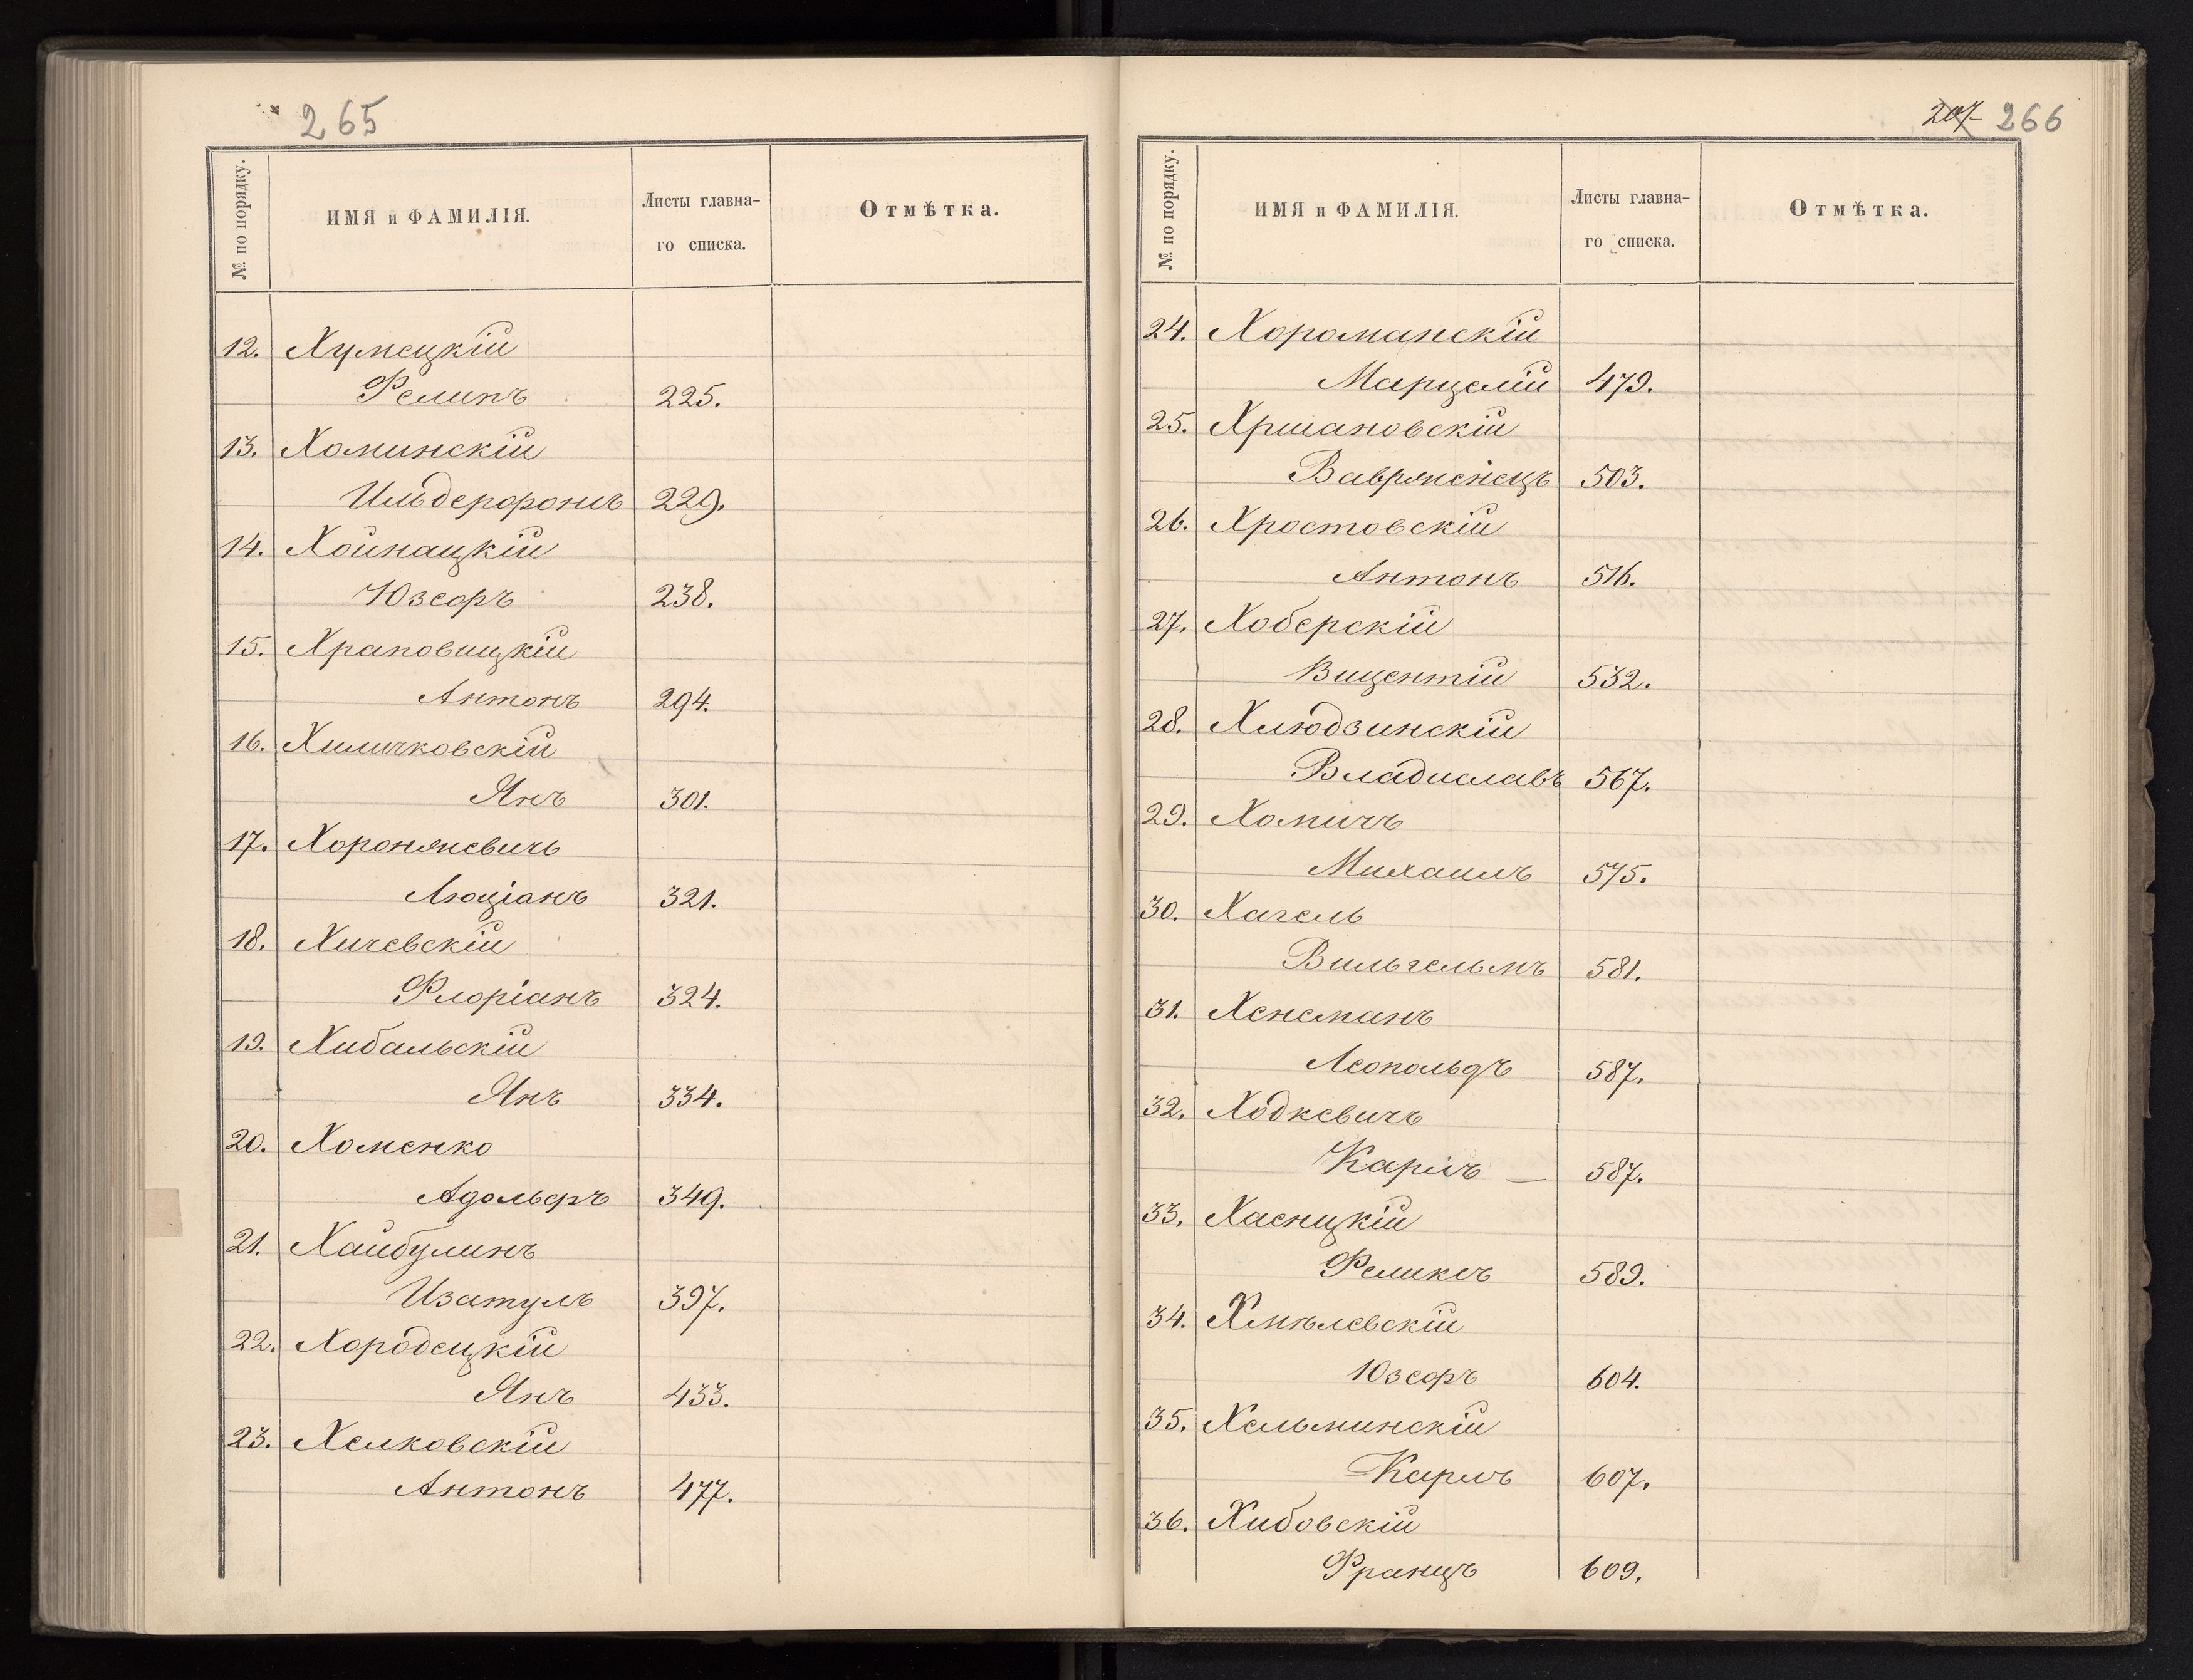 265
№ по порядку.
ИМЯ и ФАМИЛІЯ.
Листы главна-
го списка.
Отмѣтка.
12. Хумецкій
Фелипъ 225.
13. Хоминскій
Ильдерофонъ 229.
14. Хойнацкій
Юзефъ 238.
15. Храповицкій
Антонъ 294.
16. Хиличковскій
Янъ 301.
17. Хороняневичъ
Люціанъ 321.
18. Хичевскій
Флоріанъ 324.
19. Хибальскій
Янъ 334.
20. Хоменко
Адольфъ 349.
21. Хайбулинъ
Изатулъ 397.
22. Хородецкій
Янъ 433.
23. Хелковскій
Антонъ 477.
207 266
№ по порядку.
ИМЯ и ФАМИЛІЯ.
Листы главна-
го списка.
Отмѣтка.
24. Хороманскій
Марцелій 479.
25. Хршановскій
503.
26. Хростовскій
Антонъ 516.
27. Хоберскій
Вицентій 532.
28. Хлюдзинскій
Владиславъ 567.
29. Хомичъ
Михаилъ 575.
30. Хагель
Вильгельмъ 581.
31. Хенсманъ
Леопольдъ 587.
32. Ходкевичъ
Карлъ — 587.
33. Хасницкій
Феликсъ 589.
34. Хмѣлевскій
Юзефъ 604.
35. Хельминскій
Карлъ 607.
36. Хибовскій
Францъ 609.